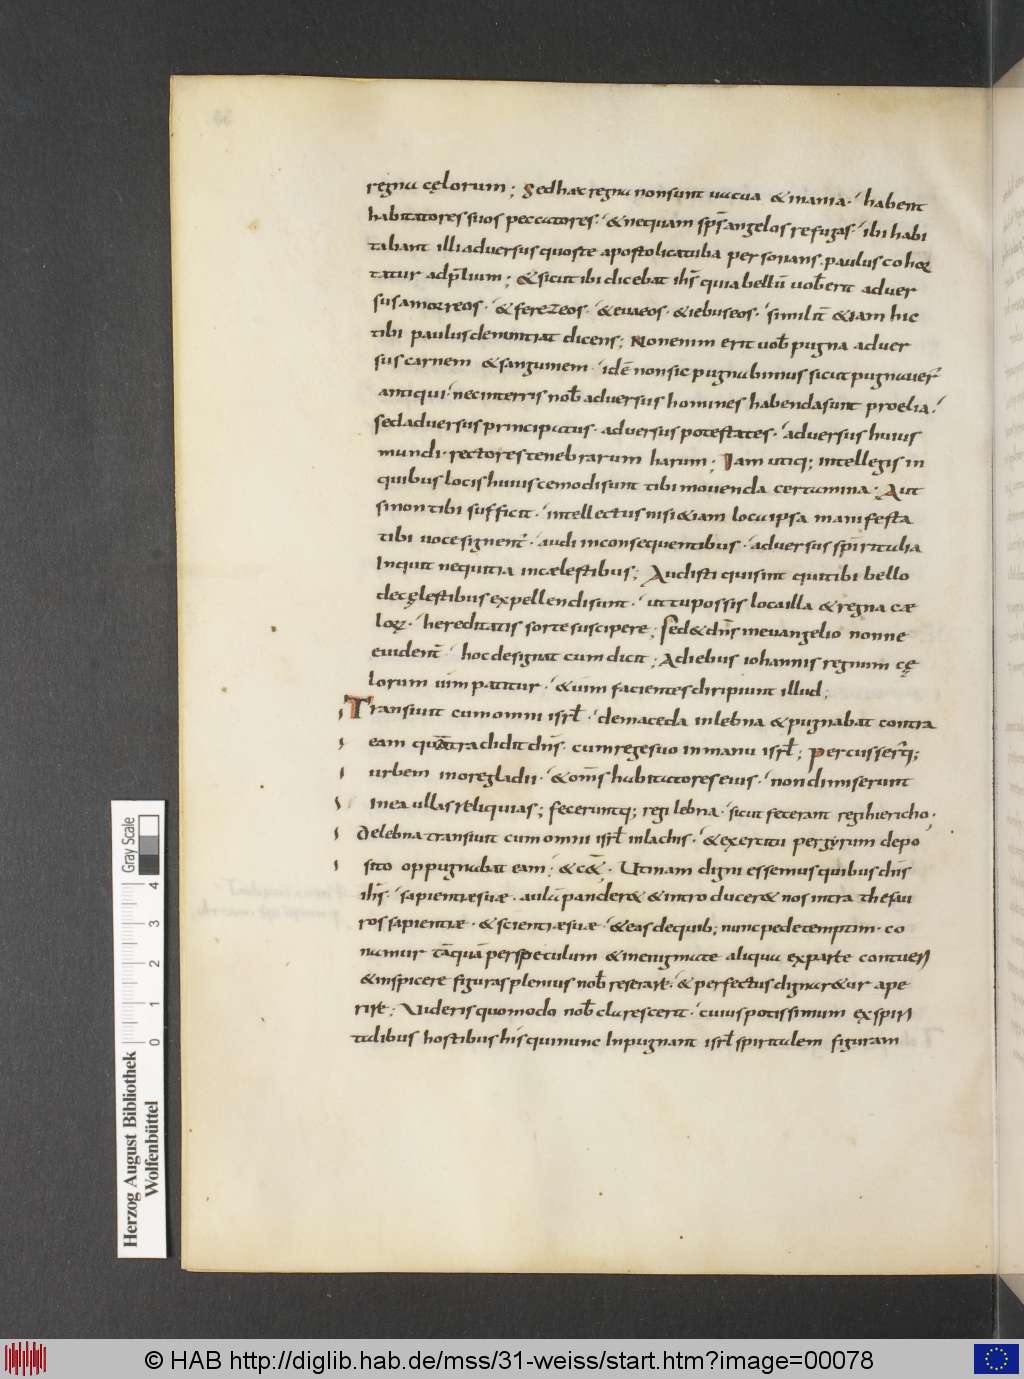 regna cęlorum; Sed haec regna non sunt uacua & inania. habent
habitatores suos peccatores. & nequam sp̄s angelos refugas. ibi habi
tabant illi aduersus quos te apostolica tuba personans. paulus cohor
tatur ad p̄lium; & sicut ibi dicebat ih̄s quia bellū uob̄ erit aduer
sus amorreos. & ferezeos. & euaeos. & iebuseos. similit̄ & iam hic
tibi paulus denuntiat dicens; Non enim erit uob̄ pugna aduer
sus carnem & sanguinem. idē non sic pugnabimus sicut pugnauer̄
antiqui. nec in terris nob̄ aduersus homines habenda sunt proelia.
sed aduersus principatus. aduersus potestates. aduersus huius
mundi. rectores tenebrarum harum; Iam utiq; intellegis in
quibus locis huiuscemodi sunt tibi mouenda certamina. Aut
si non tibi sufficit. intellectus nisi & iam loca ipsa manifesta
tibi uoce signent̄. audi in consequentibus. aduersus spiritalia
Inquit nequitia in cælestibus; Audisti qui sint qui tibi bello
de cęlestibus expellendi sunt. ut tu possis loca illa & regna cæ
lor. hereditatis sorte suscipere; Sed & dn̄s in euangelio nonne
euident̄ hoc designat cum dicit; A diebus iohannis regnum cę
lorum uim patitur. & uim facientes diripiunt illud;
Transiuit cum omni isrl̄. de maceda in lebna & pugnabat contra
eam quā tradidit dn̄s. cum rege suo in manu isrl̄; percusserq;
urbem in ore gladii. & om̄s habitatores eius. non dimiserunt
in ea ullas reliquias; feceruntq; regi lebna. sicut fecerant regi hiericho.
de lebna transiuit cum omni isrl̄ in lachis. & exercitu per gyrum depo
sito oppugnabat eam; & c&̄. Utinam digni essemus quibus dn̄s
ih̄s. sapientiæ suæ. aulā pander& & introducer& nos intra thesau
ros sapientiæ. & scientiæ suæ. & eas de quib; nunc pedetemptim. co
namur tā quā per speculum & in enigmate aliqua ex parte contueri
& inspicere figuras plenius nob̄ reserare. & perfectus dignar&ur ape
rire; Uideris quomodo nob̄ clarescerit. cuius potissimum ex spiri
talibus hostibus his qui nunc Inpugnant isrl̄ spiritalem figuram
Herzog August Bibliothek
Wolfenbüttel
Gray Scale
0 1 2 3 4
© HAB http://diglib.hab.de/mss/31-weiss/start.htm?image=00078